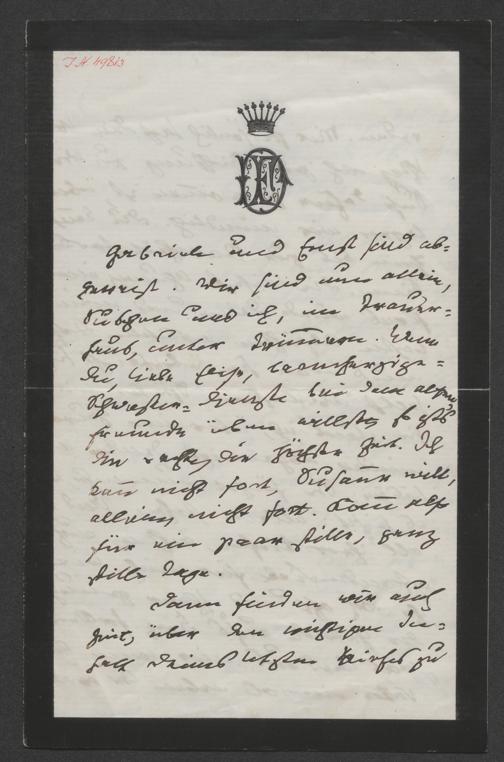 I.N. 49813
Gabriele und Ernst sind ab=
gereist. Wir sind nun allein,
Suschen und ich, im Trauer=
haus, unter Trümmern. Wenn
Du, liebe, barmherzige=
Schwester=Dienste bei dem alten
Freunde üben willst, so ist's
die rechte, die höchste Zeit. Ich
kann nicht fort, Susann will,
allein, nicht fort. Komm also
für ein paar stille, ganz
stille Tage.
Dann finden wir auch
Zeit, über den wichtigen In=
halt Deines letzten Briefes zu